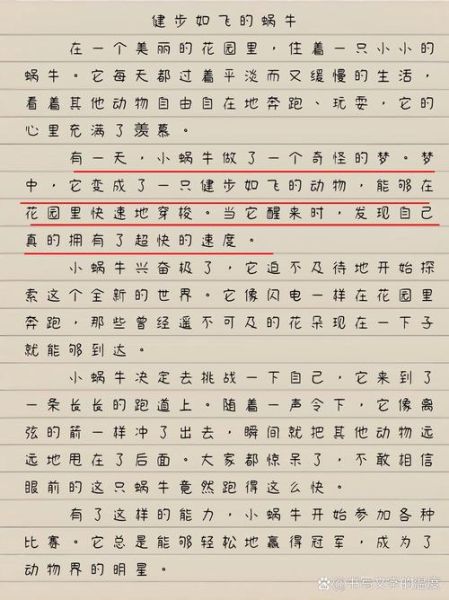 健步如飞的蜗牛
在一个美丽的花园里，住着一只小小的
蜗牛。它每天都过着平淡而又缓慢的生活，
看着其他动物自由自在地奔跑、玩耍，它的
心里充满了羡慕。
有一天，小蜗牛做了一个奇怪的梦。梦
中，它变成了一只健步如飞的动物，能够在
花园里快速地穿梭。当它醒来时，发现自己
真的拥有了超快的速度。
小蜗牛兴奋极了，它迫不及待地开始探
索这个全新的世界。它像闪电一样在花园里
奔跑，那些曾经遥不可及的花朵现在一下子
就能够到达。
小蜗牛决定去挑战一下自己，它来到了
一条长长的跑道上。随着一声令下，它像离
弦的箭一样冲了出去，瞬间就把其他动物远
远地甩在了后面。大家都惊呆了，不敢相信
眼前的这只蜗牛竟然跑得这么快。
有了这样的能力，小蜗牛开始参加各种
比赛。它总是能够轻松地赢得冠军，成为了
动物界的明星。
@书写文字的温度